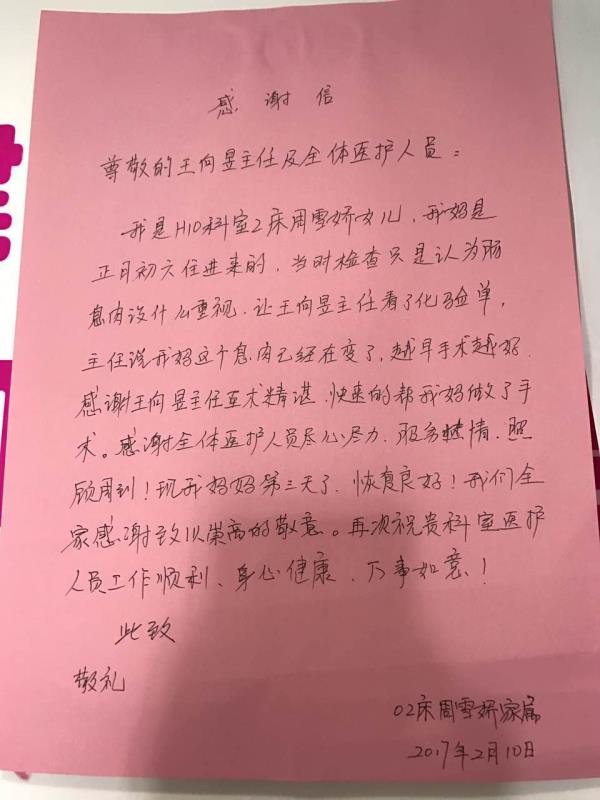 感谢信
尊敬的王向昱主任及全体医护人员：
我是H10科室2床周雪娇女儿，我妈是
正月初六住进来的，当时检查只是认为肠
息肉没什么重视，让王向昱主任看了化验单，
主任说我妈这个息肉已经在变了，越早手术越好.
感谢王向昱主任医术精湛，快速的帮我妈做了手
术。感谢全体医护人员尽心尽力，服务热情，照
顾周到！现我妈妈第三天了，恢复良好！我们全
家感谢致以崇高的敬意。再次祝贵科室医护
人员工作顺利、身心健康、万事如意！
此致
敬礼
02床周雪娇家属
2017年2月10日